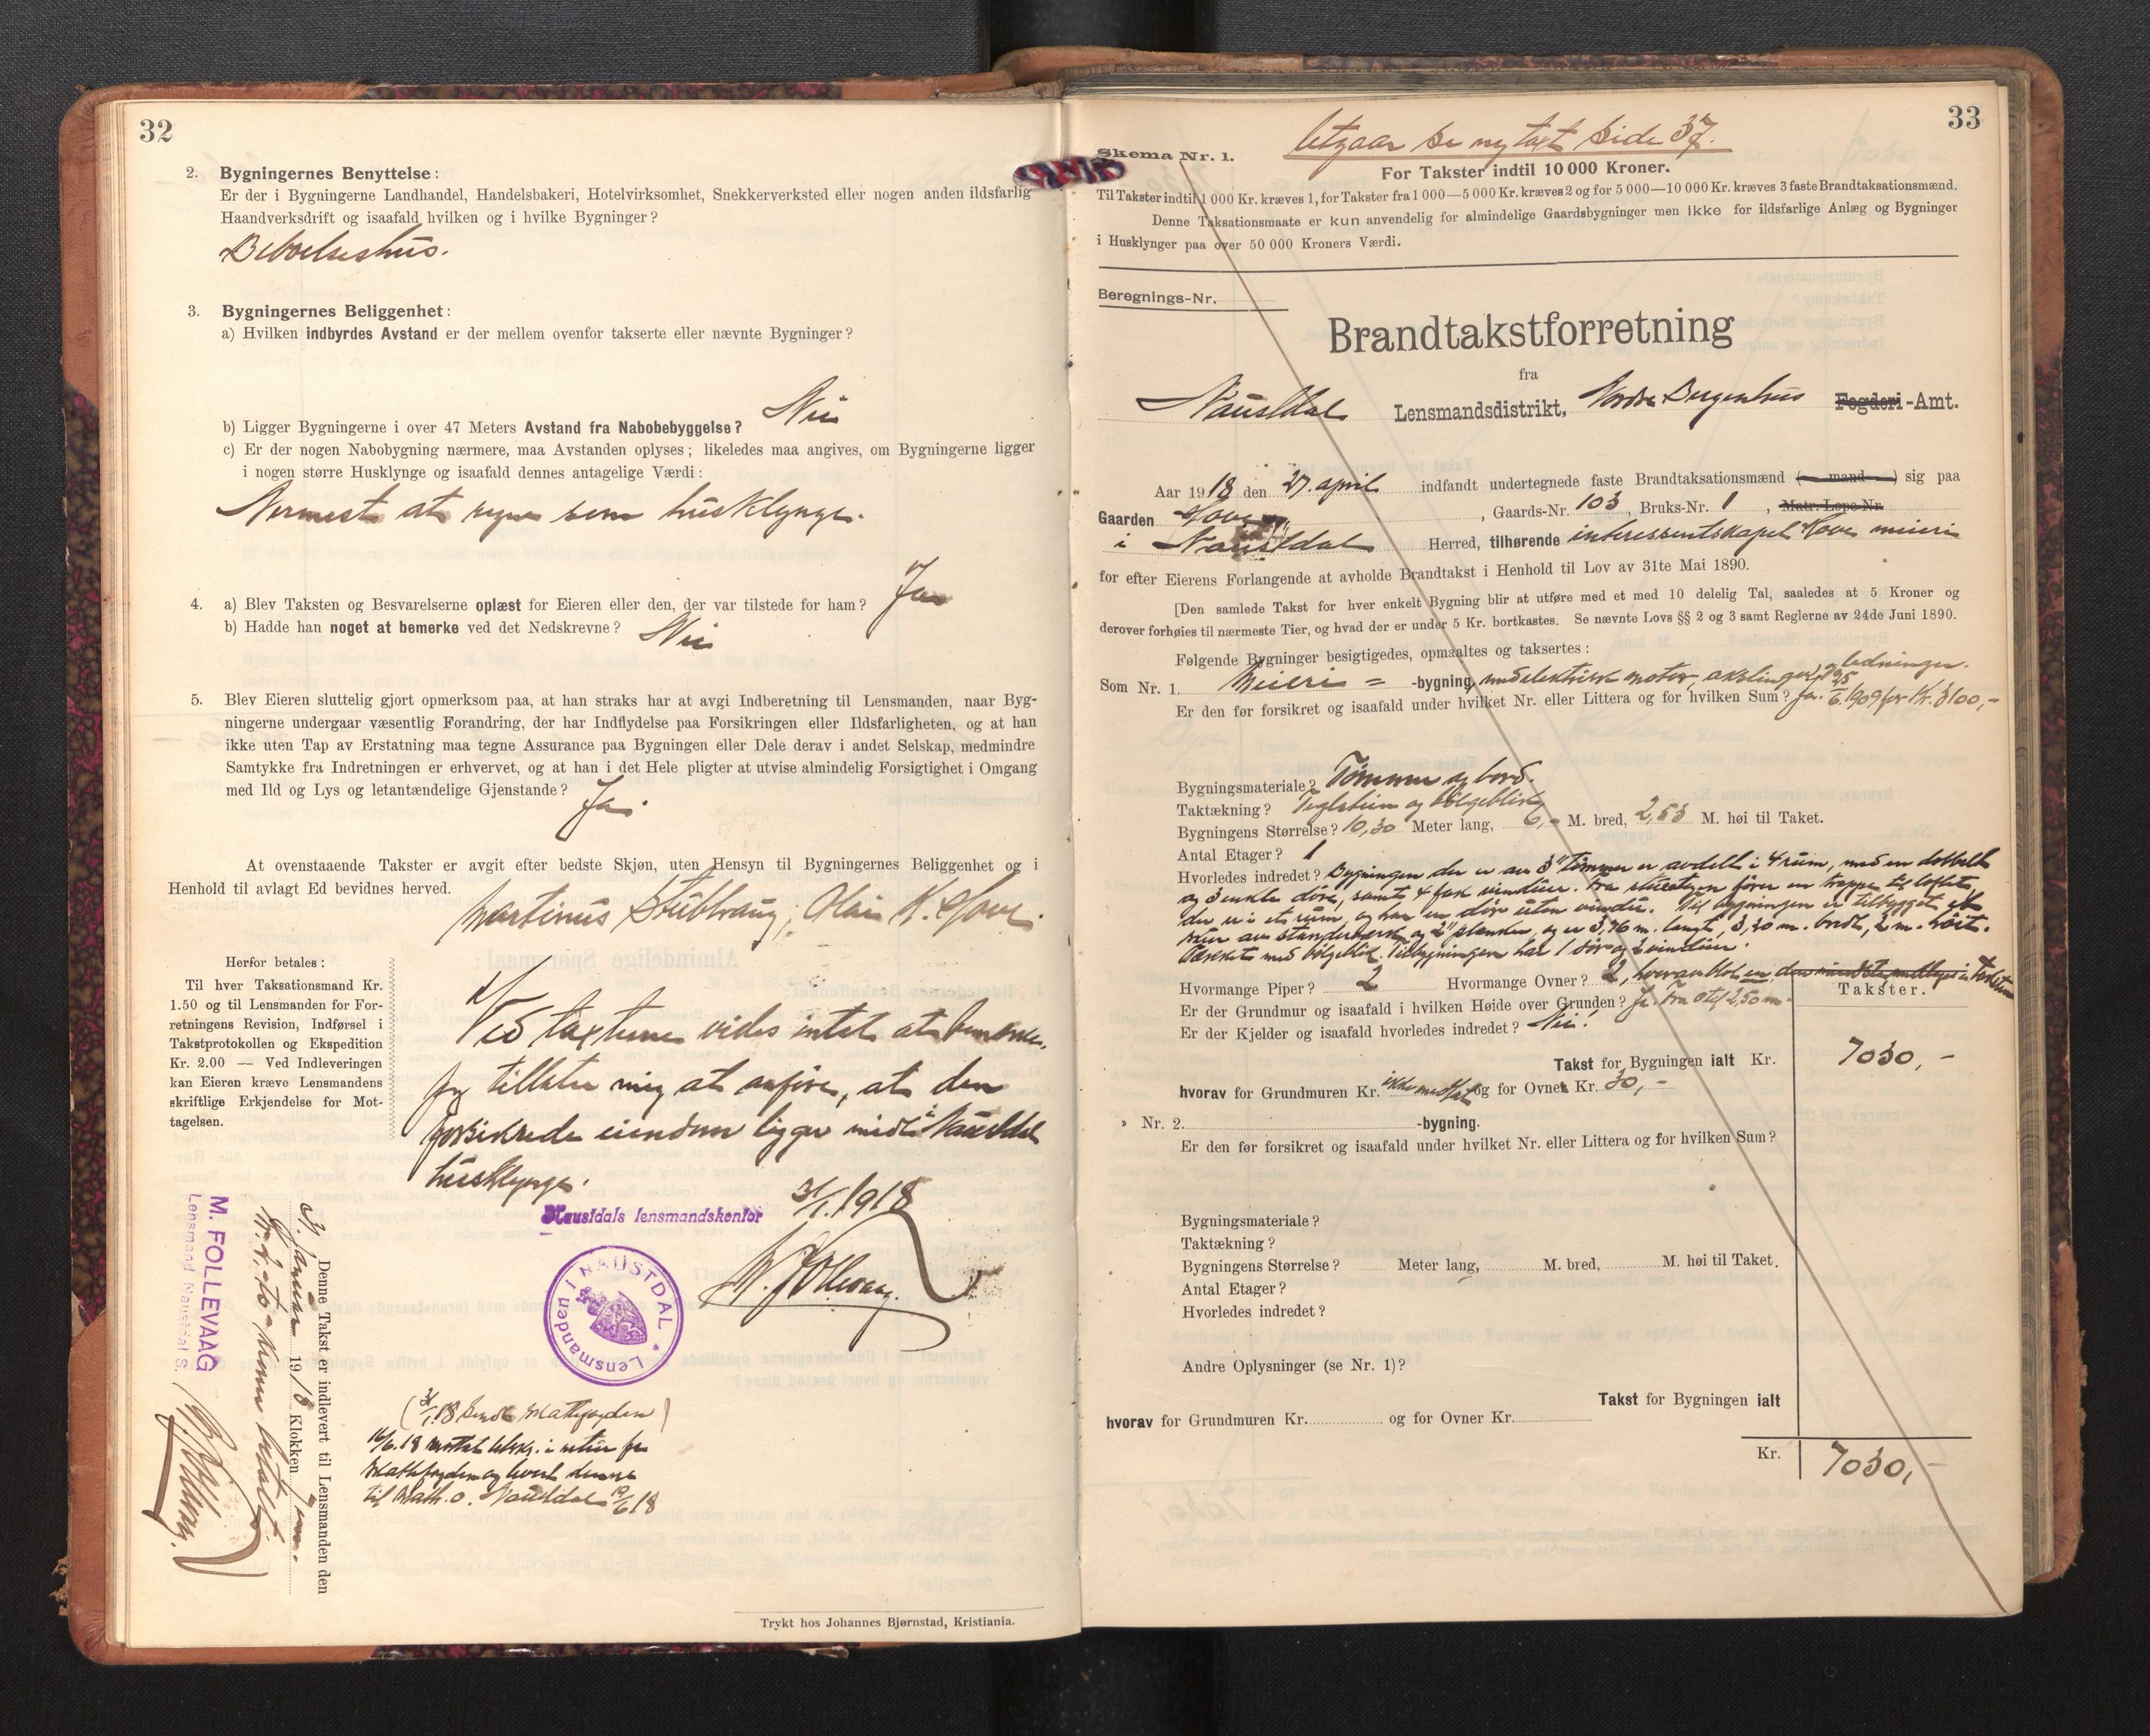 32
2. Bygningernes Benyttelse:
Er der i Bygningerne Landhandel, Handelsbakeri, Hotelvirksomhet, Snekkerverksted eller nogen anden ildsfarlig
Haandverksdrift og isaafald hvilken og i hvilke Bygninger?
Beboelseshus.
3. Bygningernes Beliggenhet:
a) Hvilken indbyrdes Avstand er der mellem ovenfor takserte eller nævnte Bygninger?
b) Ligger Bygningerne i over 47 Meters Avstand fra Nabobebyggelse? Nei
c) Er der nogen Nabobygning nærmere, maa Avstanden oplyses; likeledes maa angives, om Bygningerne ligger
i nogen større Husklynge og isaafald dennes antagelige Værdi:
Nermest at regne som husklynge.
4. a) Blev Taksten og Besvarelserne oplæst for Eieren eller den, der var tilstede for ham? Ja
b) Hadde han noget at bemerke ved det Nedskrevne? Nei
5. Blev Eieren sluttelig gjort opmerksom paa, at han straks har at avgi Indberetning til Lensmanden, naar Byg-
ningerne undergaar væsentlig Forandring, der har Indflydelse paa Forsikringen eller Ildsfarligheten, og at han
ikke uten Tap av Erstatning maa tegne Assurance paa Bygningen eller Dele derav i andet Selskap, medmindre
Samtykke fra Indretningen er erhvervet, og at han i det Hele pligter at utvise almindelig Forsigtighet i Omgang
med Ild og Lys og letantændelige Gjenstande? Ja.
At ovenstaaende Takster er avgit efter bedste Skjøn, uten Hensyn til Bygningernes Beliggenhet og i
Henhold til avlagt Ed bevidnes herved.
Martinus Stubhaug, Olai K. Hove.
Herfor betales:
Til hver Taksationsmand Kr.
1.50 og til Lensmanden for For-
retningens Revision, Indførsel i
Takstprotokollen og Ekspedition
Kr. 2.00 — Ved Indleveringen
kan Eieren kræve Lensmandens
skriftlige Erkjendelse for Mot-
tagelsen.
Ved taxterne vides intet at bemerke.
Jeg tillater mig at anføre, at den
forsikrede eiendom ligger midt i Naustdal
husklynge.
31/1.1918
Naustdals lensmandskontor
M. Follevaag.
Lensmanden i NAUSTDAL *
Denne Takst er indlevert til Lensmanden den
31. januar 1918 Klokken
M. FOLLEVAAG
Lensmand Naustdal S.
M. Follevaag.
(31/1.18 sendt Brandfogden)
til Brandk. o. Naustdal 19/6 18
Trykt hos Johannes Bjørnstad, Kristiania.
33
Utgaar se ny taxt side 37.
Skema Nr. 1.
For Takster indtil 10 000 Kroner.
Til Takster indtil 1 000 Kr. kræves 1, for Takster fra 1 000—5 000 Kr. kræves 2 og for 5 000—10 000 Kr. kræves 3 faste Brandtaksationsmænd.
Denne Taksationsmaate er kun anvendelig for almindelige Gaardsbygninger men ikke for ildsfarlige Anlæg og Bygninger
i Husklynger paa over 50 000 Kroners Værdi.
Beregnings-Nr.
Brandtakstforretning
fra
Naustdal Lensmandsdistrikt, Nordre Bergenhus Fogderi-Amt.
Aar 1918 den 27. april indfandt undertegnede faste Brandtaksationsmænd (— mand —) sig paa
Gaarden Hove, Gaards-Nr. 103, Bruks-Nr. 1, Matr. Løpe-Nr.
i Naustdal Herred, tilhørende interessentskapet Hove meieri
for efter Eierens Forlangende at avholde Brandtakst i Henhold til Lov av 31te Mai 1890.
[Den samlede Takst for hver enkelt Bygning blir at utføre med et med 10 delelig Tal, saaledes at 5 Kroner og
derover forhøies til nærmeste Tier, og hvad der er under 5 Kr. bortkastes. Se nævnte Lovs §§ 2 og 3 samt Reglerne av 24de Juni 1890.
Følgende Bygninger besigtigedes, opmaaltes og taksertes:
Som Nr. 1. Meieri = -bygning, med elektrisk motor, akslinger og ledninger.
Er den før forsikret og isaafald under hvilket Nr. eller Littera og for hvilken Sum? Ja. 25/6.1909 for Kr. 3100,-
Bygningsmateriale? Tømmer og bord.
Taktækning? Teglstein og bølgeblik
Bygningens Størrelse? 10,30 Meter lang, 6,- M. bred, 2,53 M. høi til Taket.
Antal Etager? 1
Hvorledes indret? Bygningen der er av 3" tømmer er avdelt i 4 rum, med en dobbelt
og 3 enkle døre, samt 4 fag vinduer. Fra stueetagen fører en trappe til loftet,
der er i et rum, og har en dør uten vindu. Til bygningen er tilbygget et
skur av standerverk og 2" planker, og er 3,76 m. langt, 3,30 m. bredt, 2 m. høit.
Tækket med bølgeblik. Tilbygningen har 1 dør og 2 vinduer.
Hvormange Piper? 2 Hvormange Ovner? 2, hvorav blot en
Er der Grundmur og isaafald i hvilken Høide over Grunden? Ja. Fra 0 til 2,50 m.
Er der Kjelder og isaafald hvorledes indredet? Nei.
Takster.
Takst for Bygningen ialt Kr. 7030,-
hvorav for Grundmuren Kr. ikke medtat og for Ovner Kr. 30,-
Nr. 2. -bygning.
Er den før forsikret og isaafald under hvilket Nr. eller Littera og for hvilken Sum?
Bygningsmateriale?
Taktækning?
Bygningens Størrelse? Meter lang, M. bred, M. høi til Taket.
Antal Etager?
Hvorledes indredet?
Andre Oplysninger (se Nr. 1)?
Takst for Bygningen ialt
hvorav for Grundmuren Kr. og for Ovner Kr.
Kr. 7030,-